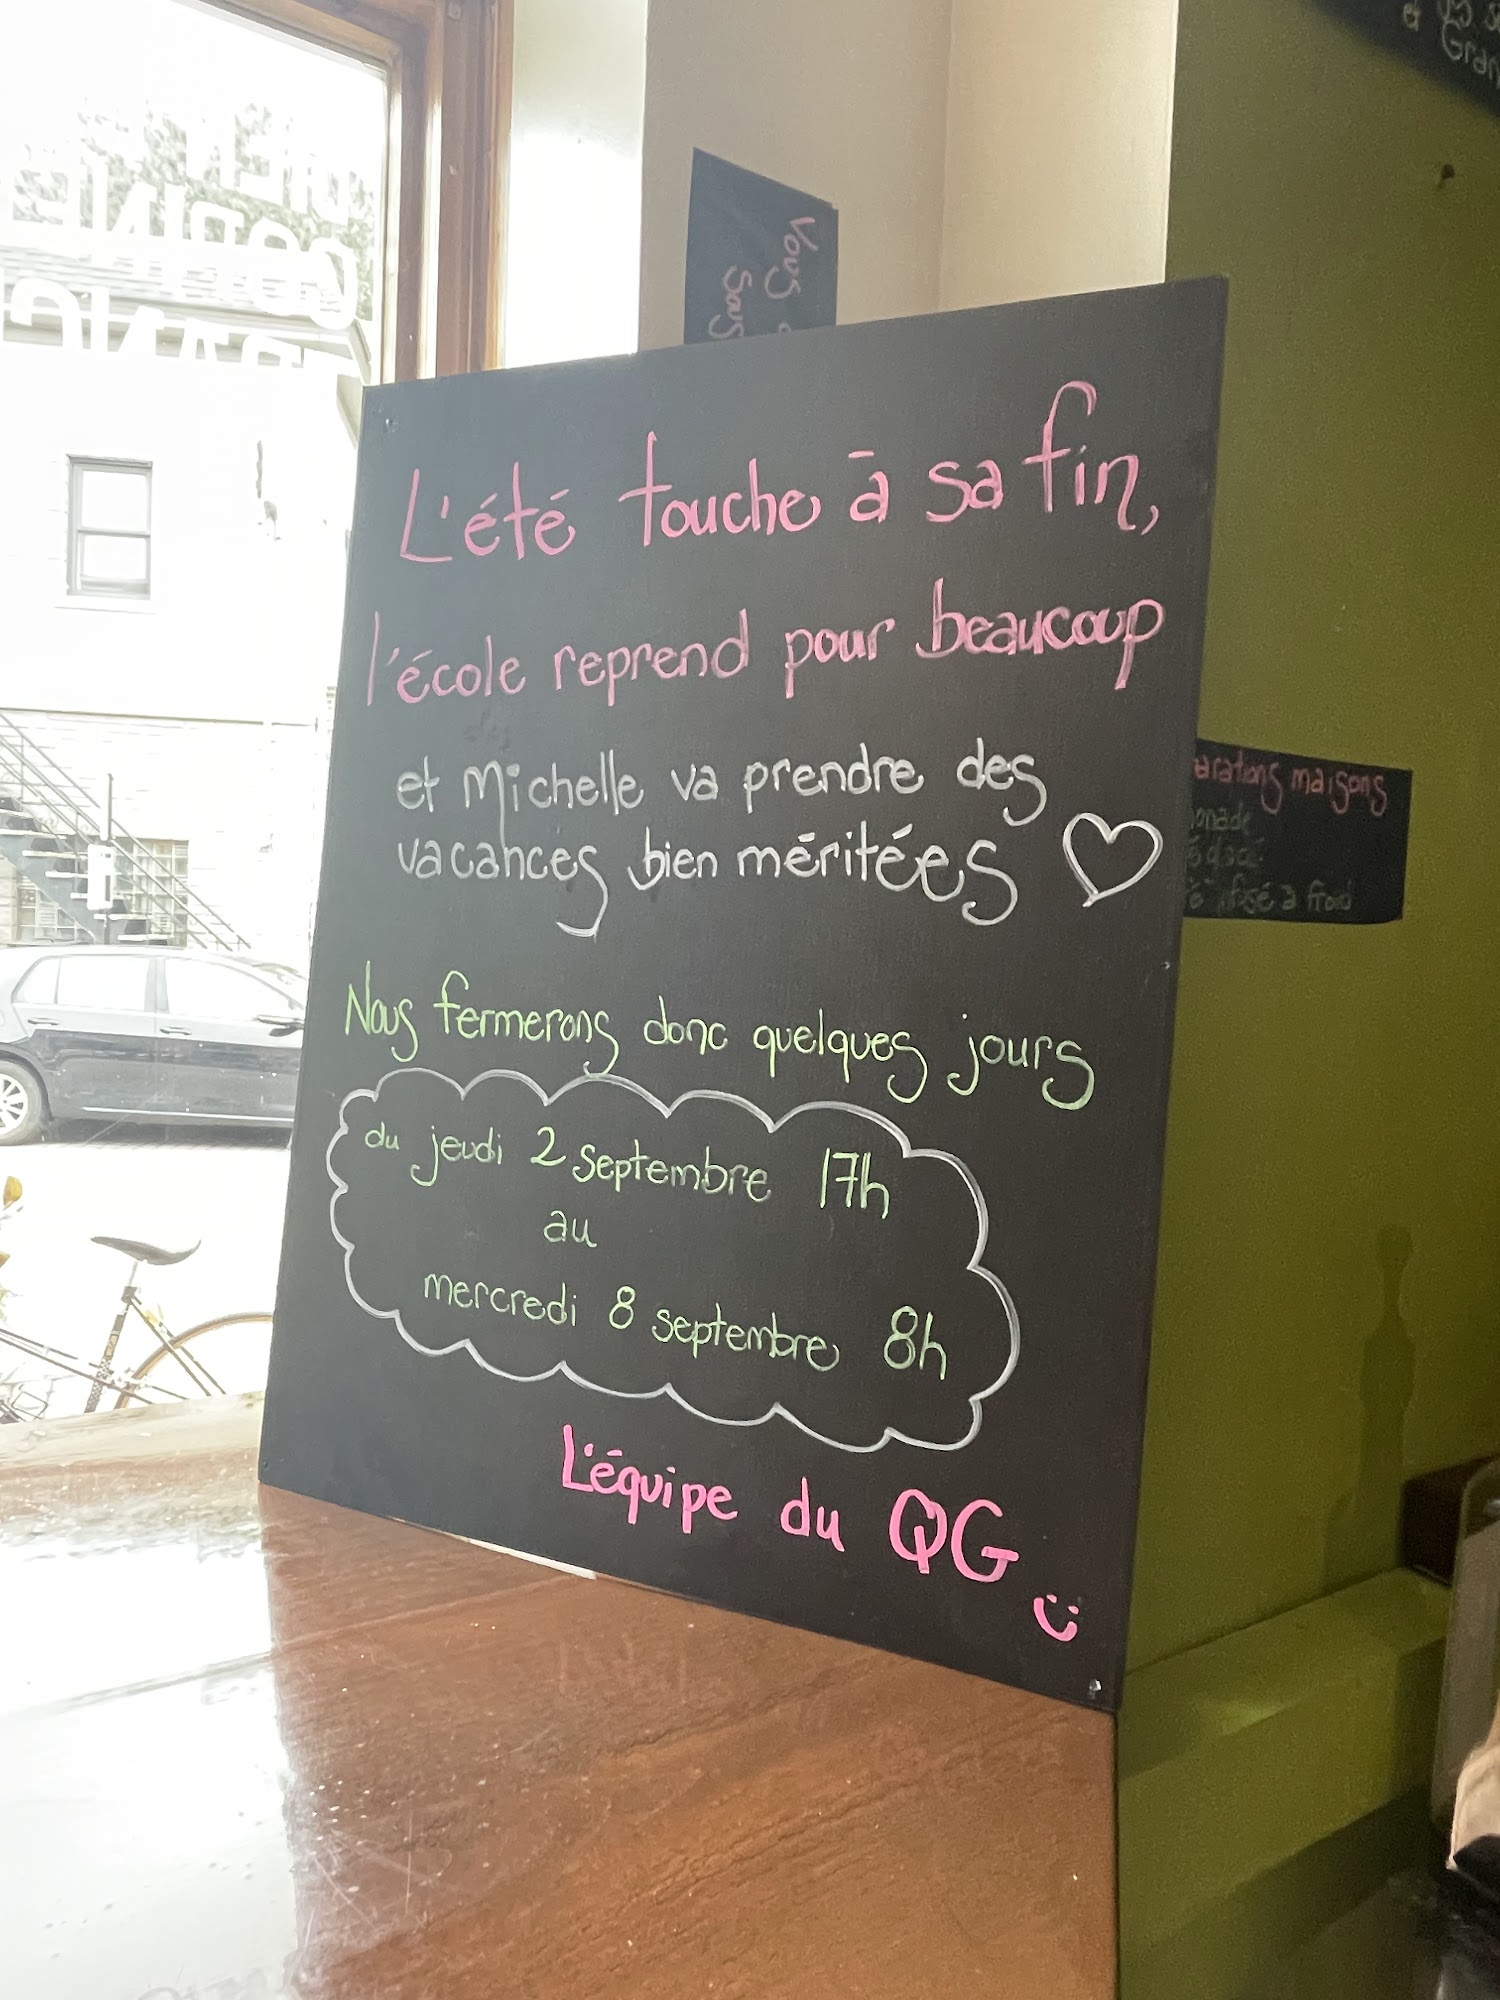 L'été touche à sa fin,
l'école reprend pour beaucoup
et Michelle va prendre des
vacances bien méritées
Nous fermerons donc quelques jours
du jeudi 2 septembre 17h
au
mercredi 8 septembre 8h
L'équipe du QG
Vous
maisons
infusé à froid
et